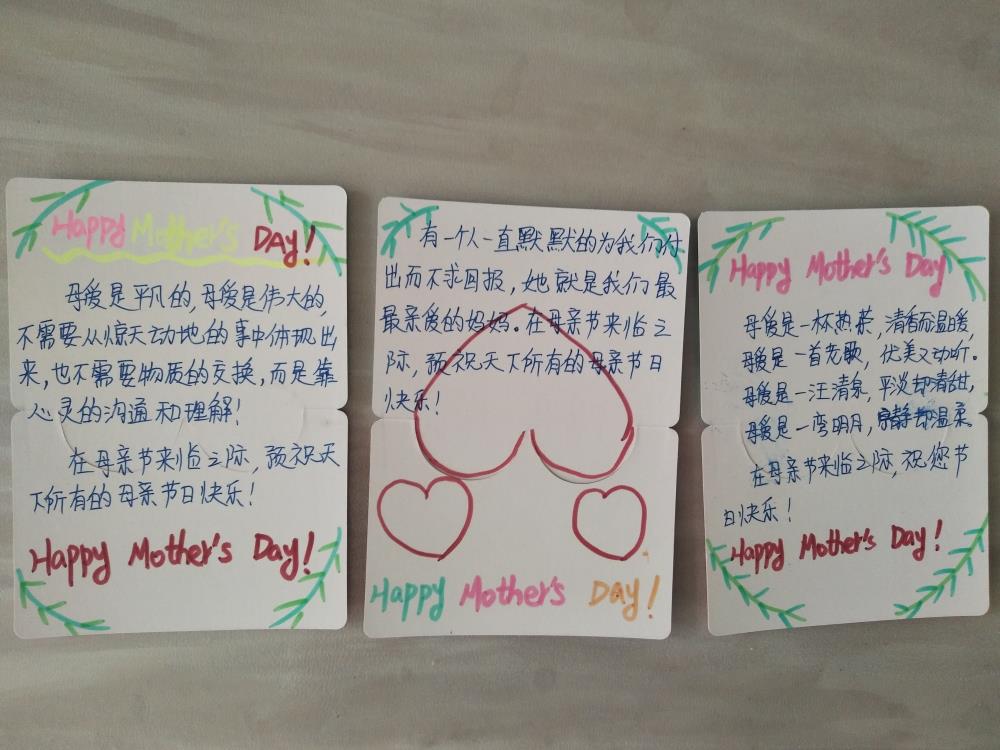 Happy Mother's DAy!
母爱是平凡的,母爱是伟大的,
不需要从惊天动地的事中体现出
来,也不需要物质的交换,而是靠
心灵的沟通和理解!
在母亲节来临之际,预祝天
下所有的母亲节日快乐!
Happy Mother's Day!
有一个人一直默默的为我们付
出而不求回报,她就是我们最
最亲爱的妈妈。在母亲节来临之
际,预祝天下所有的母亲节日
快乐!
Happy Mother's Day!
Happy Mother's Day
母爱是一杯热茶,清香而温暖,
母爱是一首老歌,优美又动听。
母爱是一汪清泉,平淡却清甜,
母爱是一弯明月,宁静却温柔。
在母亲节来临之际,祝您节
日快乐!
Happy Mother's Day!